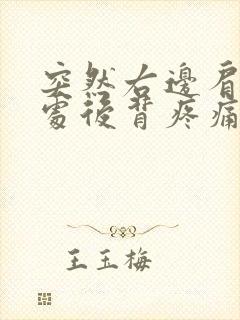 突然右邊肩
處後背疼痛
王玉梅